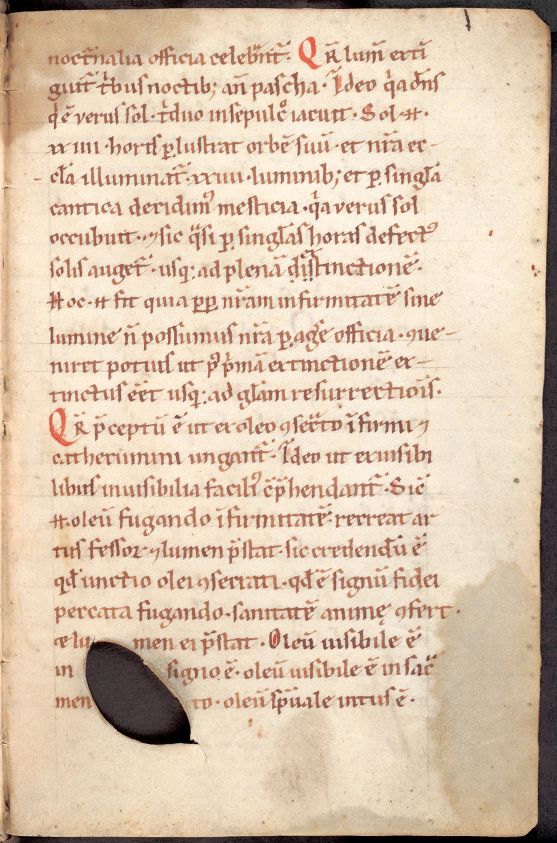 noctnalia officia celebrnt̄. Qr̄ lum̄ exti
guit̄ tⁱbus noctib; an̄ pascha. Ideo qⁱa dn̄s
qⁱ ē verus sol. tⁱduo in sepulc° iacuit. Sol .n.
xxiiii. horis ꝑlustrat orbē suū. et nr̄a ec-
cl̄a illuminat̄. xxiiii. luminib; et ꝑ singl̄a
cantica decidim᷒ mesticia. qⁱa verus sol
occubuit. ⁊ sic qᵃsi ꝑ singl̄as horas defect᷒
solis auget̄. usq; ad plenā distinctionē.
Hoc .n. fit quia ꝓp̄ nr̄am infirmitatē sine
lumine n̄ possumus nr̄a ꝑagē officia. ꝯue-
niret potuis ut p᷒ pⁱmā extinctionē ex-
tinctus eēt usq; ad gl̄am resurrectiōis.
Qr̄ p̄ceptū ē ut ex oleo ꝯsecᵃto īfirmi ⁊
catheciumini ungant̄. Ideo ut ex uisibi
libus inuisibilia facili᷒ cp̄hendant̄. Sic̄
.n. oleū fugando īfirmitatē. recreat ar
tus fessos. ⁊ lumen p̄stat. sic credendū ē
qd̄ unctio olei ꝯsecrati. qd̄ ē signū fidei
peccata fugando. sanitatē animę ꝯfert.
et lu men ei p̄stat. Oleū uisibile ē
in signo ē. oleū uisibile ē in sac̄
men to. oleū sp̄uale intus ē.